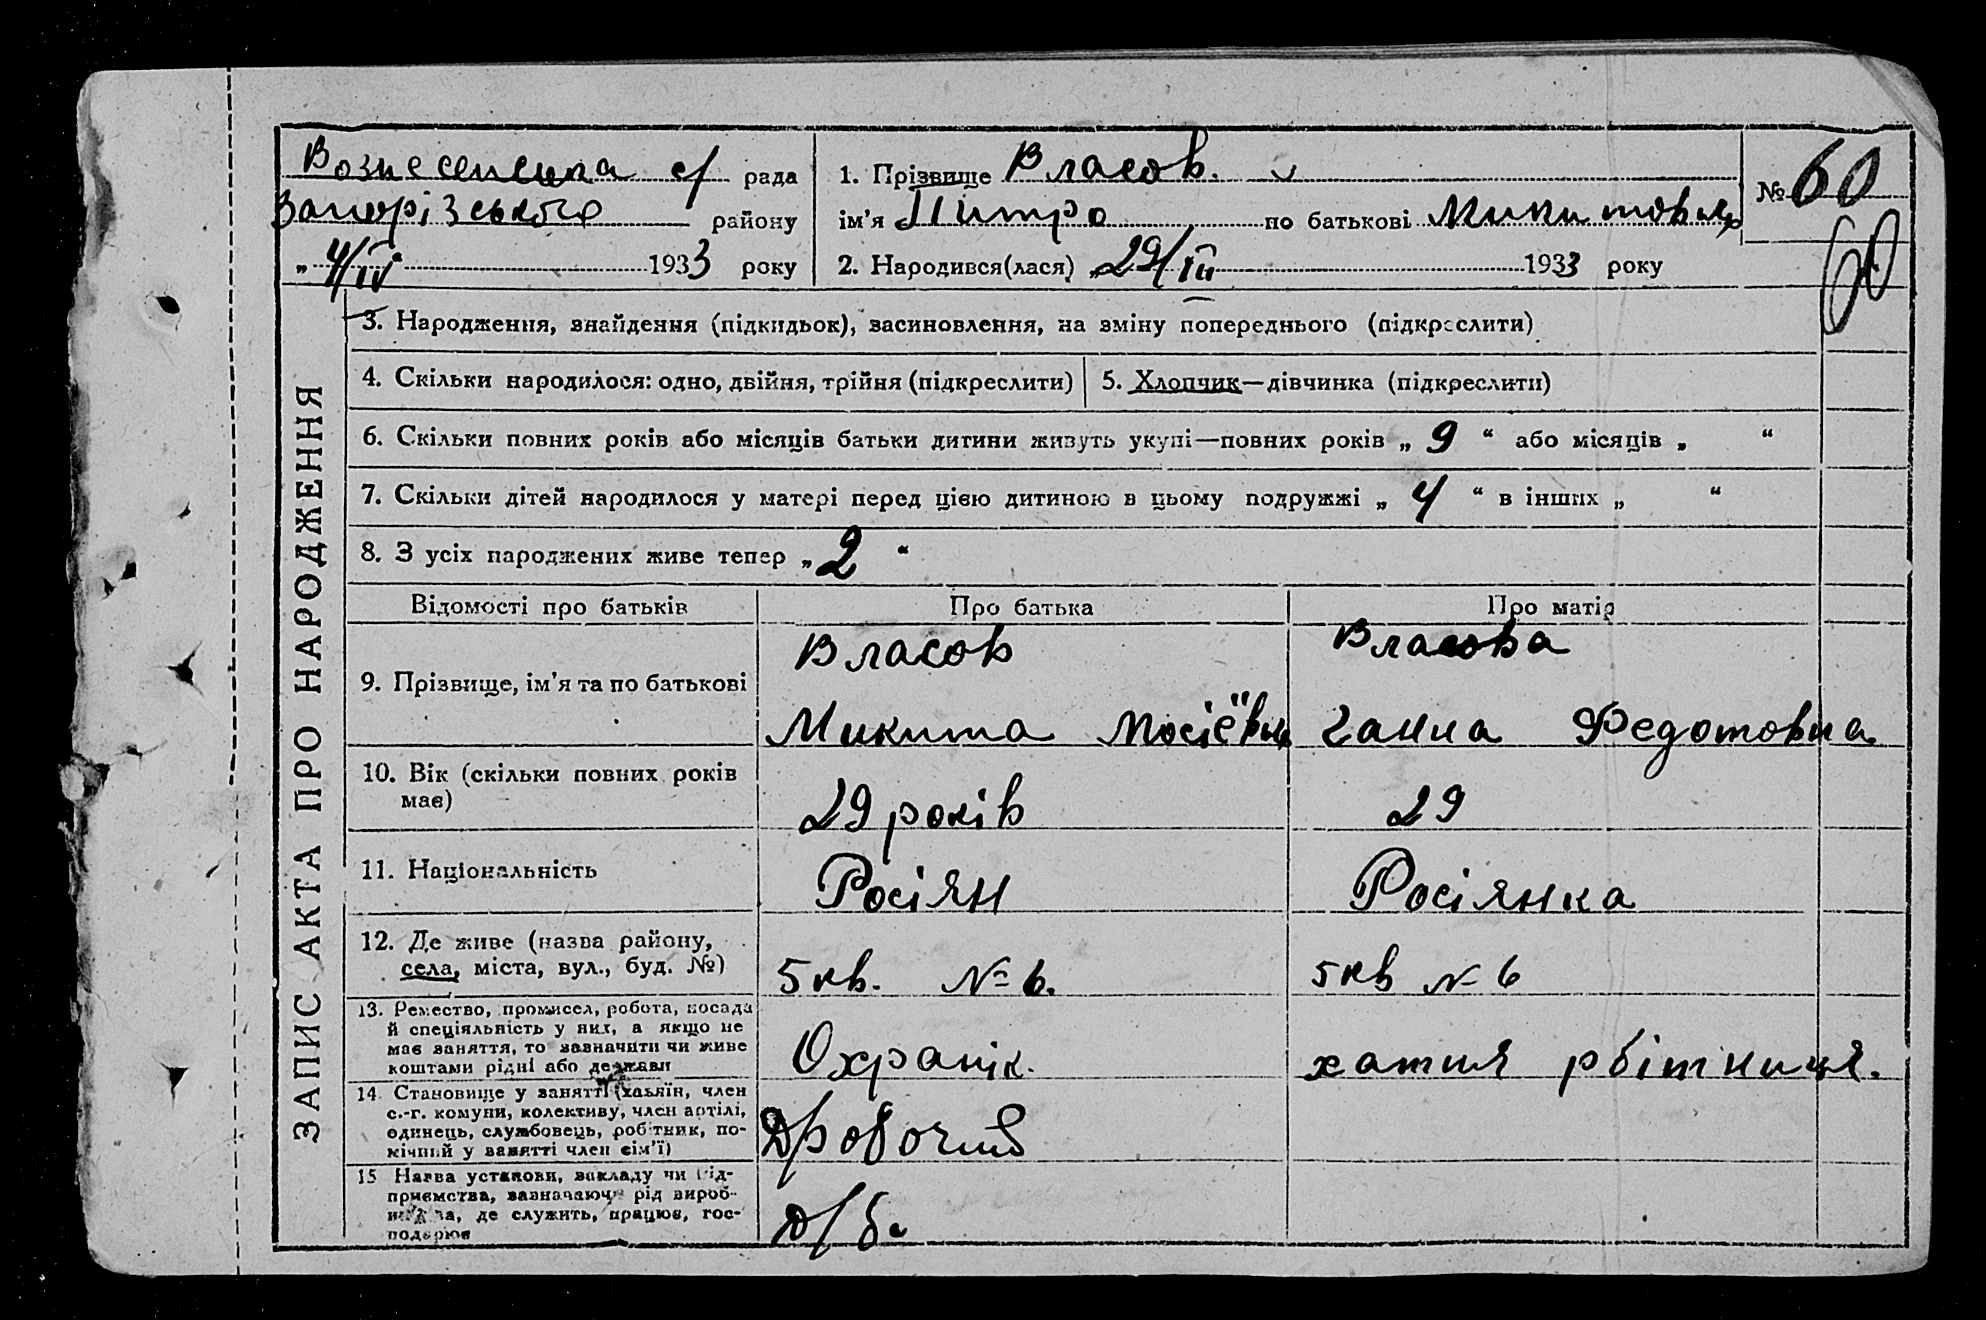 Вознесенська с/ рада
Запорізького району
„ 4/IV 1933 року
1. Прізвище Власов.
ім'я Питро по батькові Микитович
2. Народився(лася) „29/III 1933 року
№ 60
60
ЗАПИС АКТА ПРО НАРОДЖЕННЯ
3. Народження, знайдення (підкидьок), засиновлення, на зміну попереднього (підкреслити)
4. Скільки народилося: одно, двійня, трійня (підкреслити)
5. Хлопчик—дівчинка (підкреслити)
6. Скільки повних років або місяців батьки дитини живуть укупі—повних років „ 9 “ або місяців „ “
7. Скільки дітей народилося у матері перед цією дитиною в цьому подружжі „ 4 “ в інших „ “
8. З усіх народжених живе тепер „ 2 “
Відомості про батьків Про батька Про матір
9. Прізвище, ім'я та по батькові
Власов
Микита Мосієвич
Власова
Ганна Федотовна
10. Вік (скільки повних років
має)
29 років
29
11. Національність
Росіян
Росіянка
12. Де живе (назва району,
села, міста, вул., буд. №)
5 кв. № 6.
5 кв № 6
13. Ремество, промисел, робота, посада
й спеціяльність у них, а якщо не
має заняття, то зазначити чи живе
коштами рідні або держави
Охранік.
хатня рбітниця.
14. Становище у занятті (хазяїн, член
с.-г. комуни, колективу, член артілі,
одинець, службовець, робітник, по-
мічний у занятті член сім'ї)
робочий
15 Назва установи, закладу чи під-
приємства, зазначаючи рід вироб-
ництва, де служить, працює, гос-
подарює